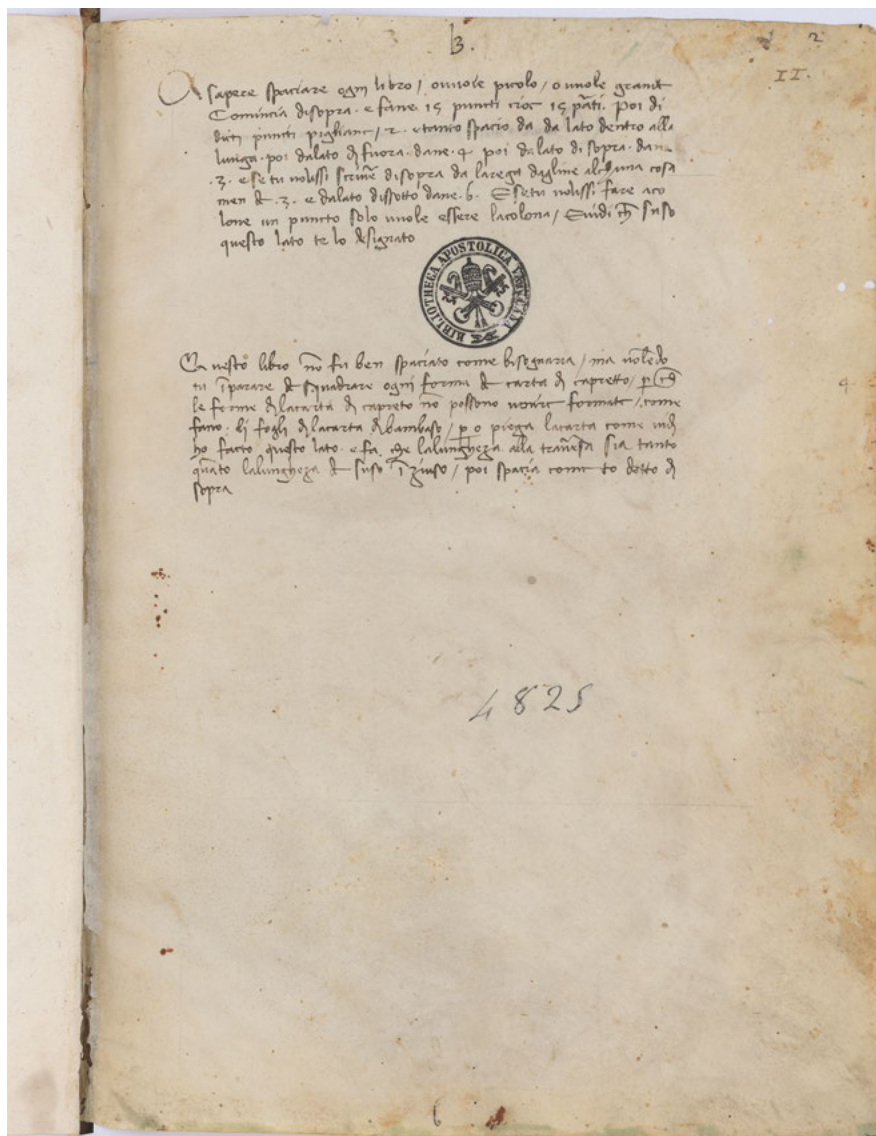 3.
2
II.
A sapere spaciare ogni libro / o vuole picolo / o vuole grande
Comincia disopra · e fane · 15 puncti cioe 15 p̄ati. Poi di
dicti puncti pigliane / 2 · e tanto spacio da da lato dentro alla
lunga · poi dalato d fuora · dane · 4 poi dalato di sopra · dane
· 3 · e se tu volissi scriuē disopra da larega dagline alchuna cosa
men de · 3 · e dalato dissotto dane · 6 · E se tu volissi fare aco
lone un puncto solo vuole essere lacolona / E vidi ch̄ suso
questo lato te lo designato
BIBLIOTHECA APOSTOLICA VATICANA
Questo libro nō fu ben spaciato come bisognaria / ma volēdo
tu īparare de squadrare ogni forma de carta d capretto / p̱ ch̄
le forme d lacarta d capreto nō possono venire formate / come
fano · li fogli d lacarta d bambaso / p̱ o piega lacarta come vidi
ho facto questo lato · e fa · che lalungheza alla trauēsa sia tanto
quāto lalungheza de suso ī giuso / poi spacia come to detto d
sopra
4
4825